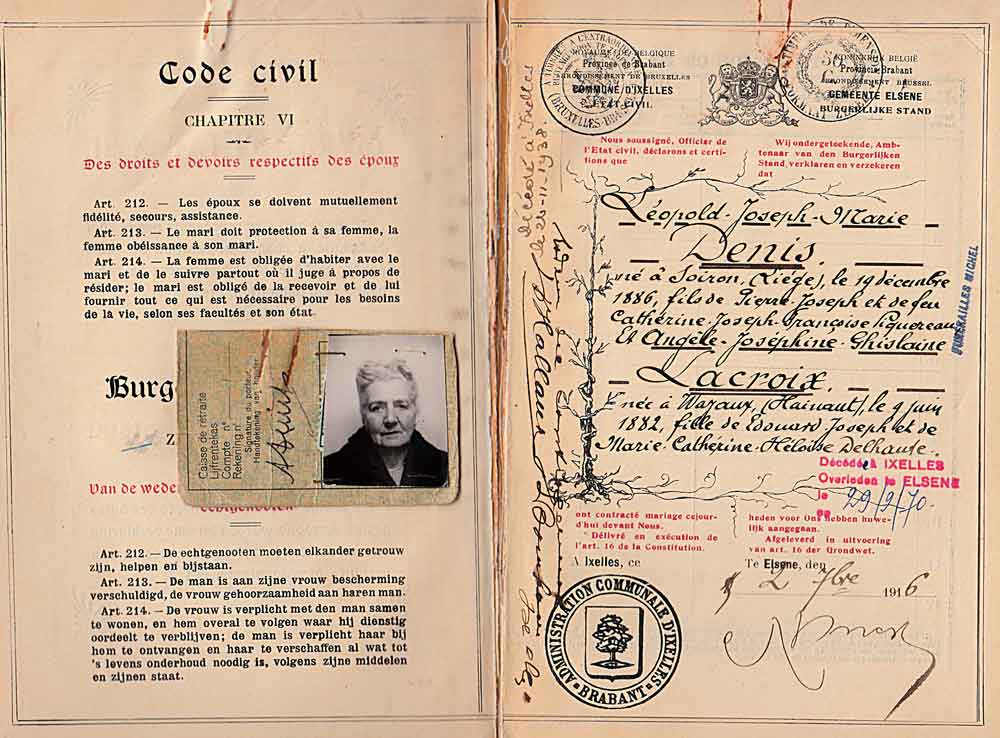 Code civil
CHAPITRE VI
Des droits et devoirs respectifs des époux
Art. 212. — Les époux se doivent mutuellement
fidélité, secours, assistance.
Art. 213. — Le mari doit protection à sa femme, la
femme obéissance à son mari.
Art. 214. — La femme est obligée d'habiter avec le
mari et de le suivre partout où il juge à propos de
résider; le mari est obligé de la recevoir et de lui
fournir tout ce qui est nécessaire pour les besoins
de la vie, selon ses facultés et son état.
Burg
Z
Caisse de retraite
Lijfrentekas
Compte n°
Rekening n°
Signature du porteur
Handtekening van houder
Van de weder
echtgenooten
Art. 212. — De echtgenooten moeten elkander getrouw
zijn, helpen en bijstaan.
Art. 213. — De man is aan zijne vrouw bescherming
verschuldigd, de vrouw gehoorzaamheid aan haren man.
Art. 214. — De vrouw is verplicht met den man samen
te wonen, en hem overal te volgen waar hij dienstig
oordeelt te verblijven; de man is verplicht haar bij
hem te ontvangen en haar te verschaffen al wat tot
's levens onderhoud noodig is, volgens zijne middelen
en zijnen staat.
ROYAUME DE BELGIQUE
Province de Brabant
ARRONDISSEMENT DE BRUXELLES
COMMUNE D'IXELLES
ÉTAT CIVIL
KONINKRIJK BELGIË
Provincie Brabant
ARRONDISSEMENT BRUSSEL
GEMEENTE ELSENE
BURGERLIJKE STAND
Nous soussigné, Officier de
l'Etat civil, déclarons et certi-
fions que
Wij ondergeteekende, Amb-
tenaar van den Burgerlijken
Stand, verklaren en verzekeren
dat
Léopold-Joseph-Marie
Denis,
né à Soiron, (Liége), le 19 décembre
1886, fils de Pierre-Joseph et de feu
Catherine-Joseph-Françoise Piquereau
Et Angèle-Joséphine-Ghislaine
Lacroix,
née à Wayaux, (Hainaut), le 9 juin
1882, fille de Edouard Joseph et de
Marie-Catherine-Héloïse Delhause.
Décédé à IXELLES
Overleden te ELSENE
le 29/2/70
op
Décédé à Ixelles
le 23-11-1938.
FUNERAILLES MICHEL
ont contracté mariage cejour-
d'hui devant Nous.
Délivré en exécution de
l'art. 16 de la Constitution.
heden voor Ons hebben huwe-
lijk aangegaan.
Afgeleverd in uitvoering
van art. 16 der Grondwet.
A Ixelles, ce
Te Elsene, den
2 7bre 1916
ADMINISTRATION COMMUNALE D'IXELLES
BRABANT